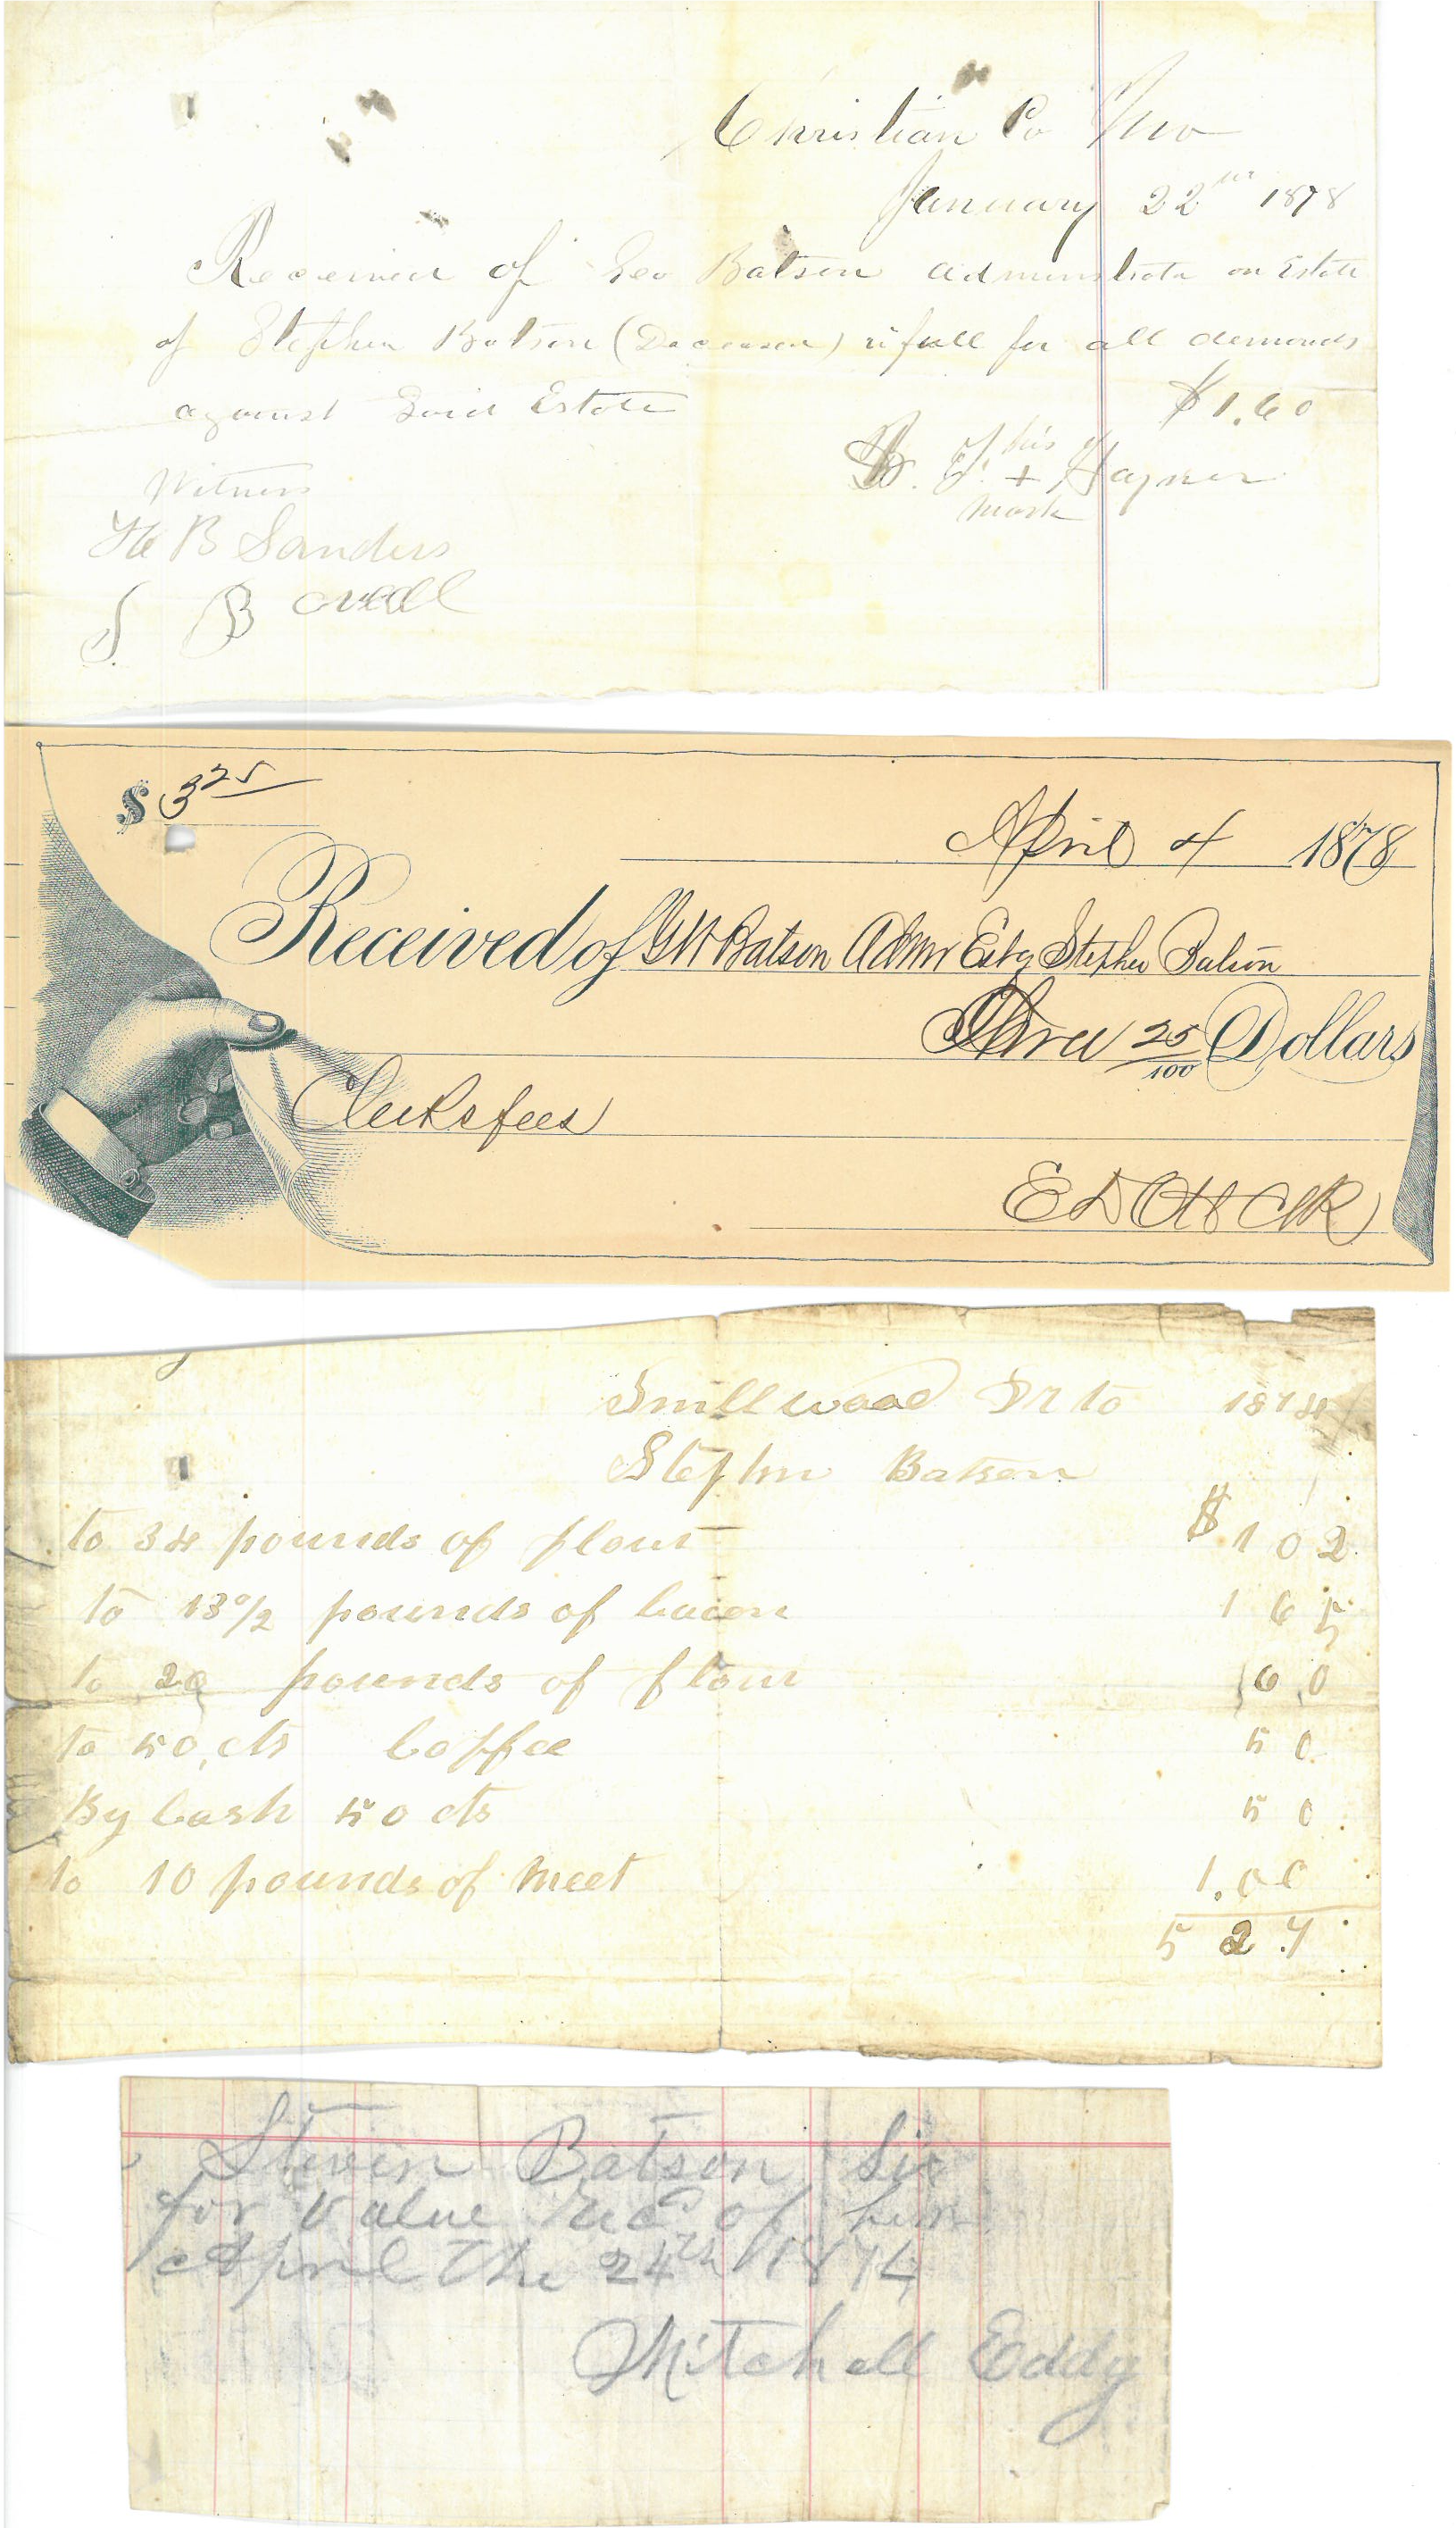 Christian Co Mo
January 22nd 1878
Received of Geo Batson administrator on Estate
of Stephen Batson (Deceased) in full for all demands
against Said Estate
$1.60
his
B. F. + Haynes
mark
Witness
B Sanders
S B
$ 3 25
April 4 1878
Received of GW Batson Admr Est of Stephen Batson
Three 25/100 Dollars
Clerks fees
E D Ott Clk
Smillwood Dr to 1874
Stephn Batson
to 34 pounds of flour $ 1 0 2
to 13 1/2 pounds of bacon 1 6 5
to 20 pounds of flour 6 0
to 50 cts Coffee 5 0
By Cash 50 cts 5 0
to 10 pounds of meet 1.00
5 2 7
Steven Batson Sir
for value recd of him
April the 24th 1874
Mitchell Eddy